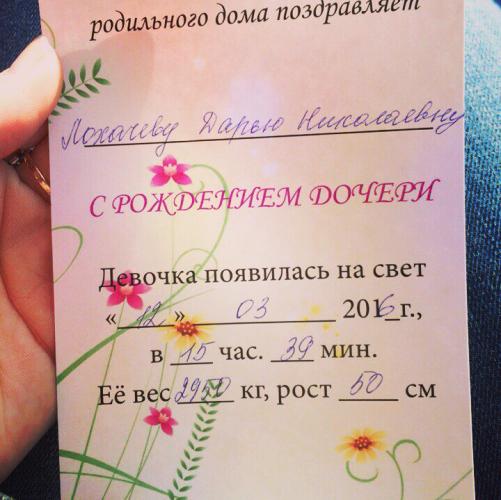 родильного дома поздравляет
Лохачеву Дарью Николаевну
С РОЖДЕНИЕМ ДОЧЕРИ
Девочка появилась на свет
«12» 03 2016 г.,
в 15 час. 39 мин.
Её вес 2950 кг, рост 50 см